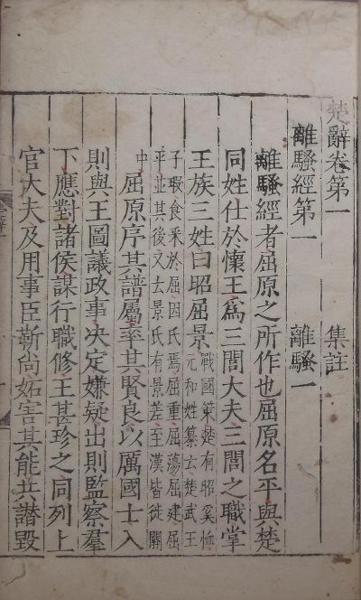 楚辭卷第一 集註
離騷經第一 離騷一
離騷經者屈原之所作也屈原名平與楚
同姓仕於懷王爲三閭大夫三閭之職掌
王族三姓曰昭屈景戰國策楚有昭奚恤
元和姓纂云楚武王
子瑕食采於屈因氏焉屈重屈蕩屈建屈
平並其後又云景氏有景差至漢皆徙關
中屈原序其譜屬率其賢良以厲國士入
則與王圖議政事決定嫌疑出則監察羣
下應對諸侯謀行職修王甚珍之同列上
官大夫及用事臣靳尚妬害其能共譖毀